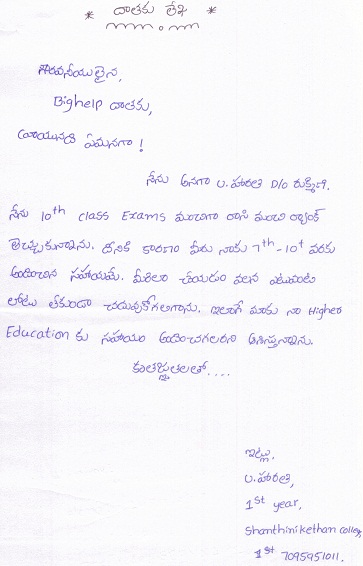 * దాతకు లేఖ *
గౌరవనీయులైన,
Bighelp దాతకు,
వ్రాయునది ఏమనగా !
నేను అనగా U. హారతి D/O రుక్మిణి.
నేను 10th class Exams మంచిగా రాసి మంచి ర్యాంక్
తెచ్చుకున్నాను. దీనికి కారణం మీరు నాకు 7th-10th వరకు
అందించిన సహాయమే. మీరిలా చేయడం వలన ఎటువంటి
లోటు లేకుండా చదువుకోగలిగాను. ఇలాగే మాకు నా Higher
Education కు సహాయం అందించగలరని ఆశిస్తున్నాను.
కృతజ్ఞతలతో....
ఇట్లు,
U. హారతి,
1st year,
Shanthinikethan college,
1st 7095951011.